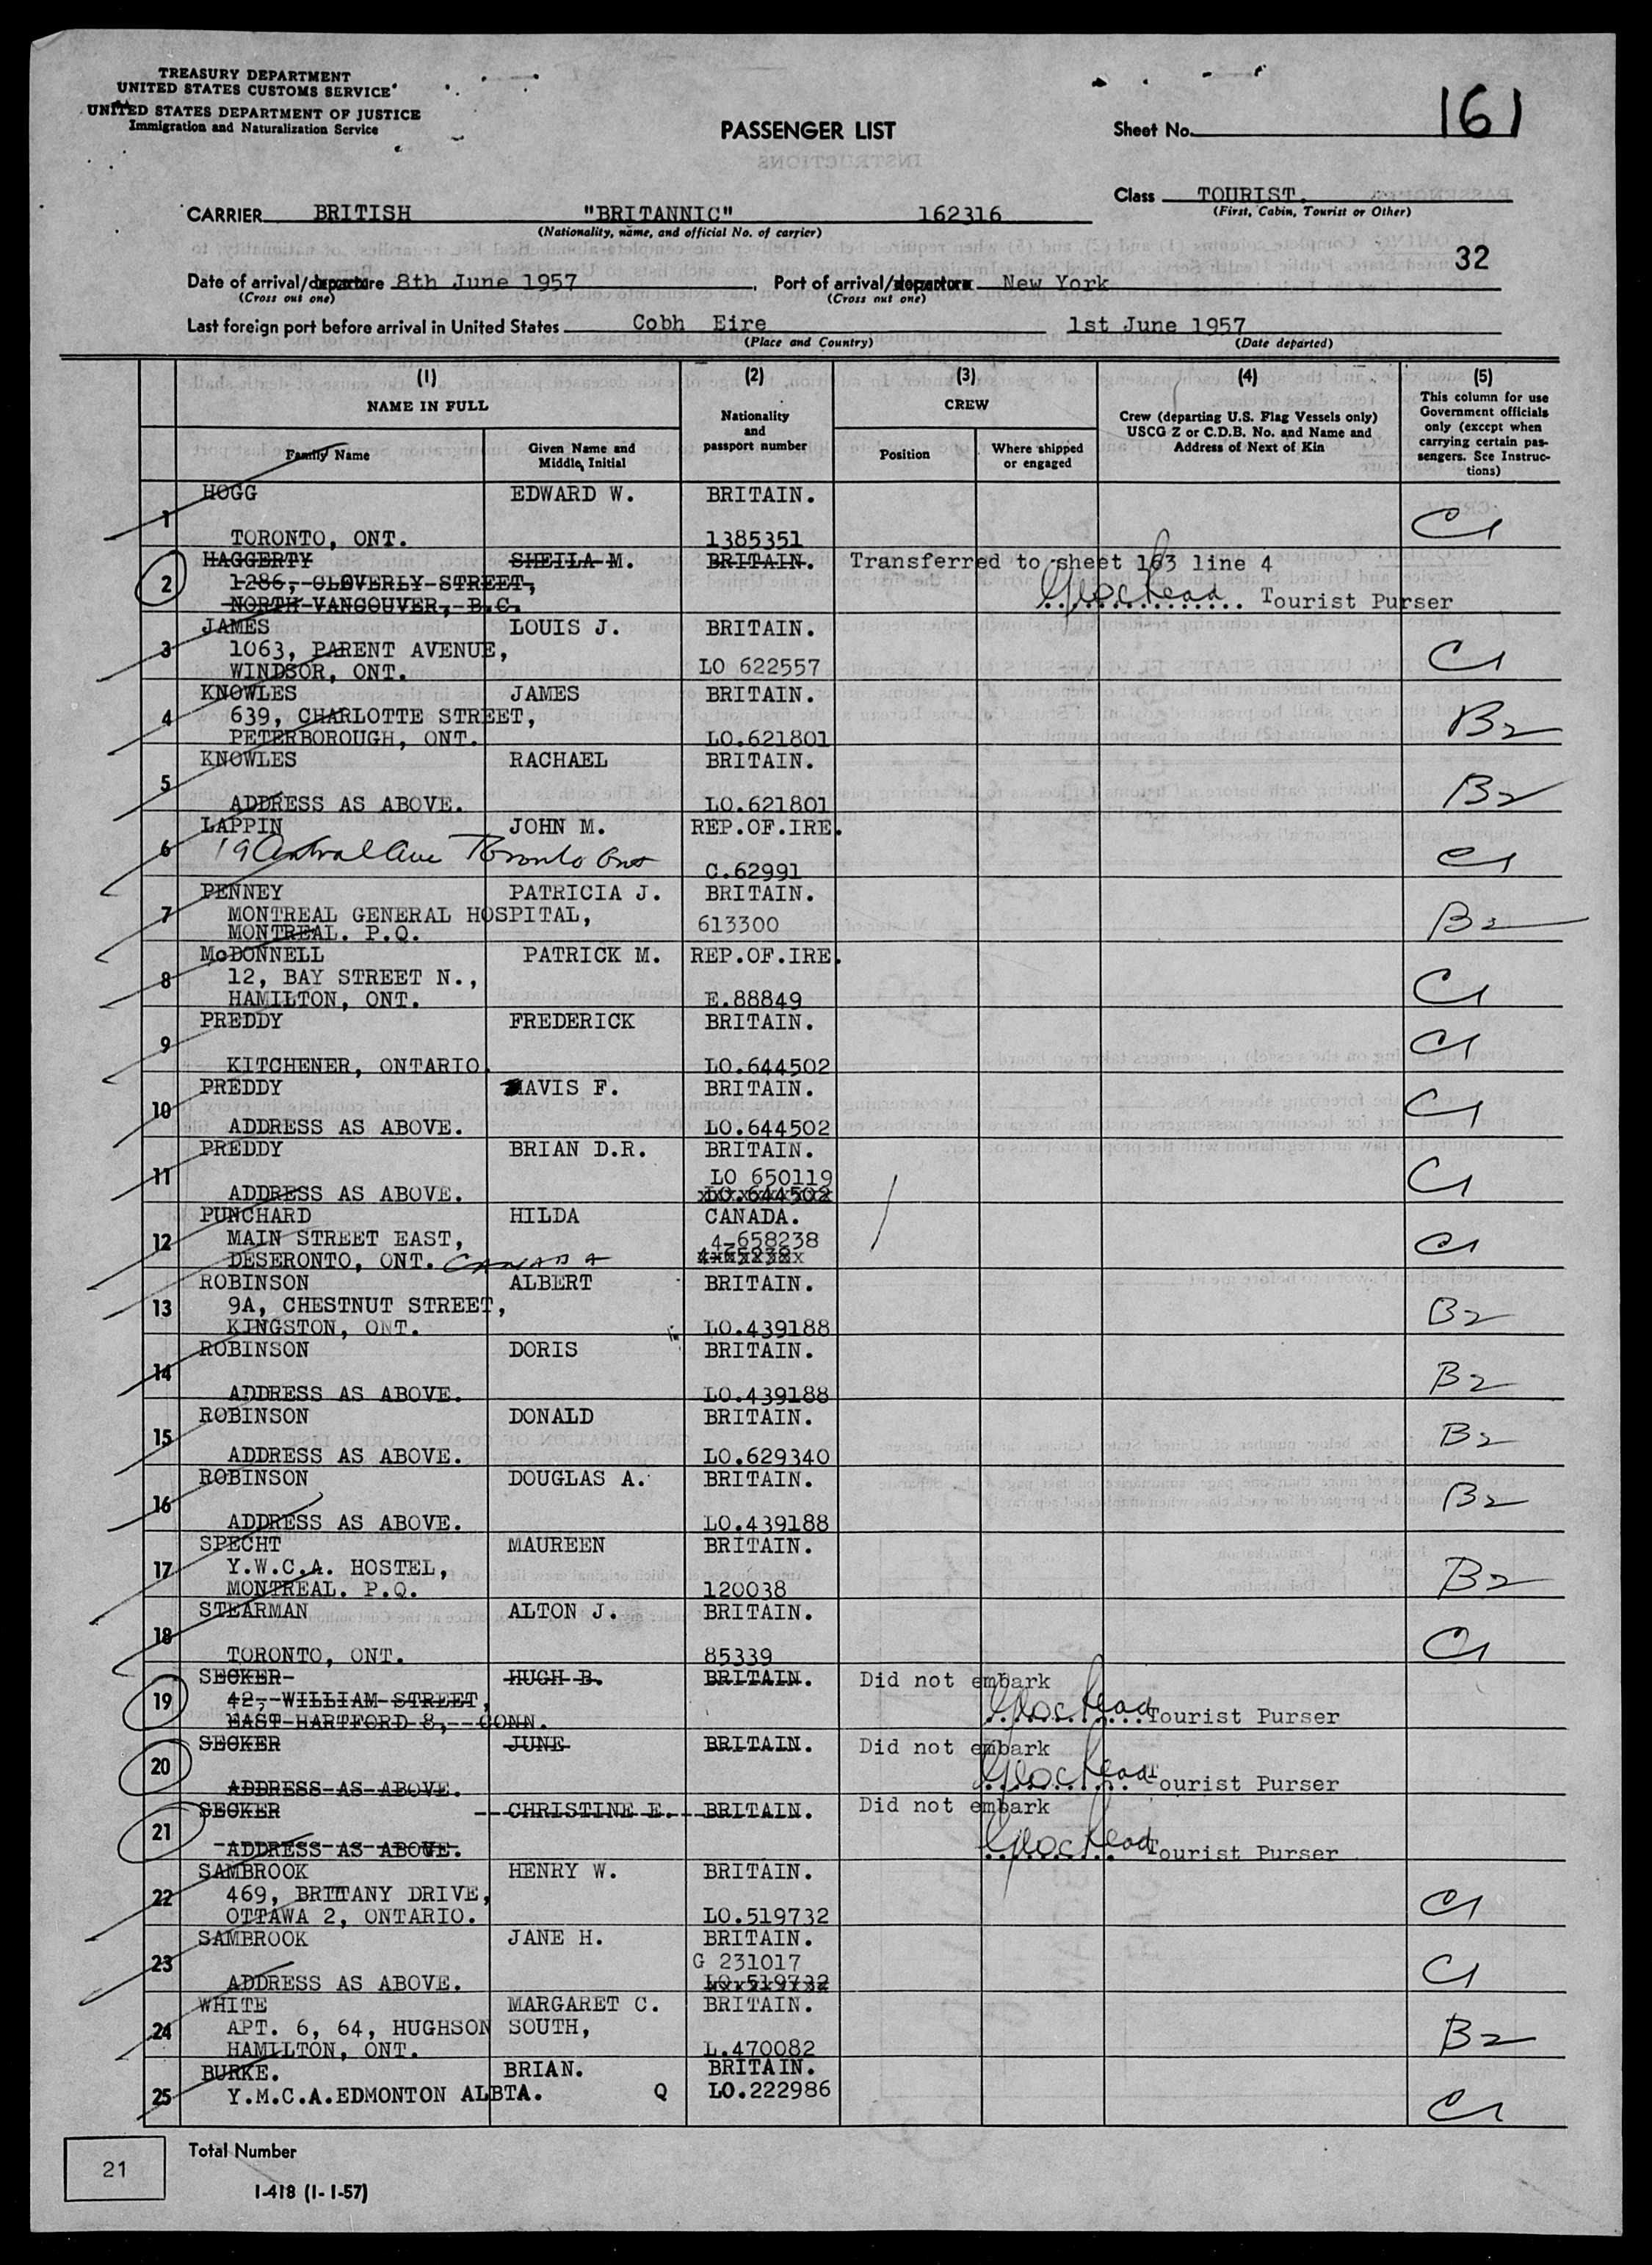 TREASURY DEPARTMENT
UNITED STATES CUSTOMS SERVICE
UNITED STATES DEPARTMENT OF JUSTICE
Immigration and Naturalization Service
PASSENGER LIST
Sheet No. 161
Class TOURIST.
(First, Cabin, Tourist or Other)
CARRIER BRITISH "BRITANNIC" 162316
(Nationality, name, and official No. of carrier)
32
Date of arrival/departure 8th June 1957, Port of arrival/departure New York
(Cross out one) (Cross out one)
Last foreign port before arrival in United States Cobh Eire 1st June 1957
(Place and Country) (Date departed)
(1) (2) (3) (4) (5)
NAME IN FULL Nationality and passport number CREW Crew (departing U.S. Flag Vessels only) USCG Z or C.D.B. No. and Name and Address of Next of Kin This column for use Government officials only (except when carrying certain passengers. See Instructions)
Family Name Given Name and Middle Initial Position Where shipped or engaged
1 HOGG EDWARD W. BRITAIN. C1
TORONTO, ONT. 1385351
2 HAGGERTY SHEILA M. BRITAIN. Transferred to sheet 163 line 4
1286, CLOVERLY STREET, Tourist Purser
NORTH VANCOUVER, B.C.
3 JAMES LOUIS J. BRITAIN. C1
1063, PARENT AVENUE,
WINDSOR, ONT. LO 622557
4 KNOWLES JAMES BRITAIN. B2
639, CHARLOTTE STREET,
PETERBOROUGH, ONT. LO.621801
5 KNOWLES RACHAEL BRITAIN. B2
ADDRESS AS ABOVE. LO.621801
6 LAPPIN JOHN M. REP.OF.IRE. C1
19 Central Ave Toronto Ont C.62991
7 PENNEY PATRICIA J. BRITAIN. B2
MONTREAL GENERAL HOSPITAL, 613300
MONTREAL. P.Q.
8 McDONNELL PATRICK M. REP.OF.IRE. C1
12, BAY STREET N.,
HAMILTON, ONT. E.88849
9 PREDDY FREDERICK BRITAIN. C1
KITCHENER, ONTARIO. LO.644502
10 PREDDY MAVIS F. BRITAIN. C1
ADDRESS AS ABOVE. LO.644502
11 PREDDY BRIAN D.R. BRITAIN. C1
LO 650119
ADDRESS AS ABOVE. LO.644502
12 PUNCHARD HILDA CANADA. C1
MAIN STREET EAST, 4-658238
DESERONTO, ONT. CANADA 4-65238
13 ROBINSON ALBERT BRITAIN. B2
9A, CHESTNUT STREET,
KINGSTON, ONT. LO.439188
14 ROBINSON DORIS BRITAIN. B2
ADDRESS AS ABOVE. LO.439188
15 ROBINSON DONALD BRITAIN. B2
ADDRESS AS ABOVE. LO.629340
16 ROBINSON DOUGLAS A. BRITAIN. B2
ADDRESS AS ABOVE. LO.439188
17 SPECHT MAUREEN BRITAIN. B2
Y.W.C.A. HOSTEL,
MONTREAL. P.Q. 120038
18 STEARMAN ALTON J. BRITAIN. C1
TORONTO, ONT. 85339
19 SECKER HUGH B. BRITAIN. Did not embark
42, WILLIAM STREET, Tourist Purser
EAST HARTFORD 8, CONN.
20 SECKER JUNE BRITAIN. Did not embark
ADDRESS AS ABOVE. Tourist Purser
21 SECKER CHRISTINE E. BRITAIN. Did not embark
ADDRESS AS ABOVE. Tourist Purser
22 SAMBROOK HENRY W. BRITAIN. C1
469, BRITTANY DRIVE,
OTTAWA 2, ONTARIO. LO.519732
23 SAMBROOK JANE H. BRITAIN. C1
G 231017
ADDRESS AS ABOVE. LO.519732
24 WHITE MARGARET C. BRITAIN. B2
APT. 6, 64, HUGHSON SOUTH,
HAMILTON, ONT. L.470082
25 BURKE. BRIAN. BRITAIN. C1
Y.M.C.A.EDMONTON ALBTA. Q LO.222986
21 Total Number
I-418 (1-1-57)